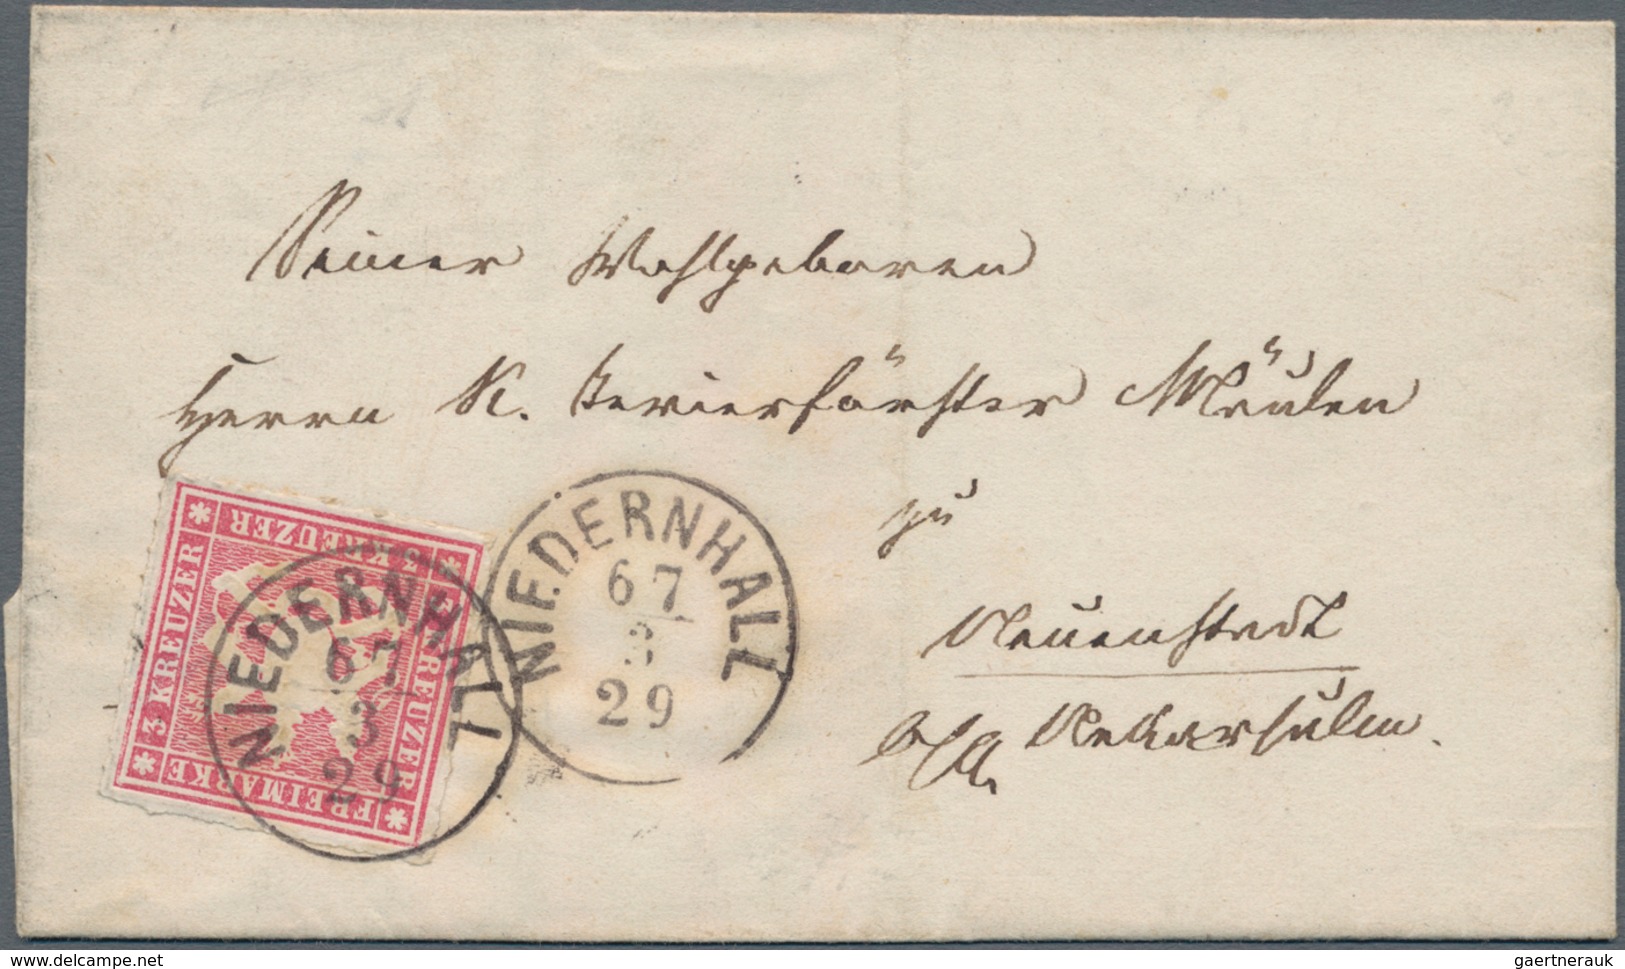 Seiner Wohlgeboren
Herrn K. Revierförster Mäulen
zu
Neuenstadt
O/A. Nekarsulm.
NIEDERNHALL
67
3
29
NIEDERNHALL
67
3
29
3 KREUZER
3 KREUZER
3 KREUZER
FREIMARKE
www.delcampe.net
gaertnerauk